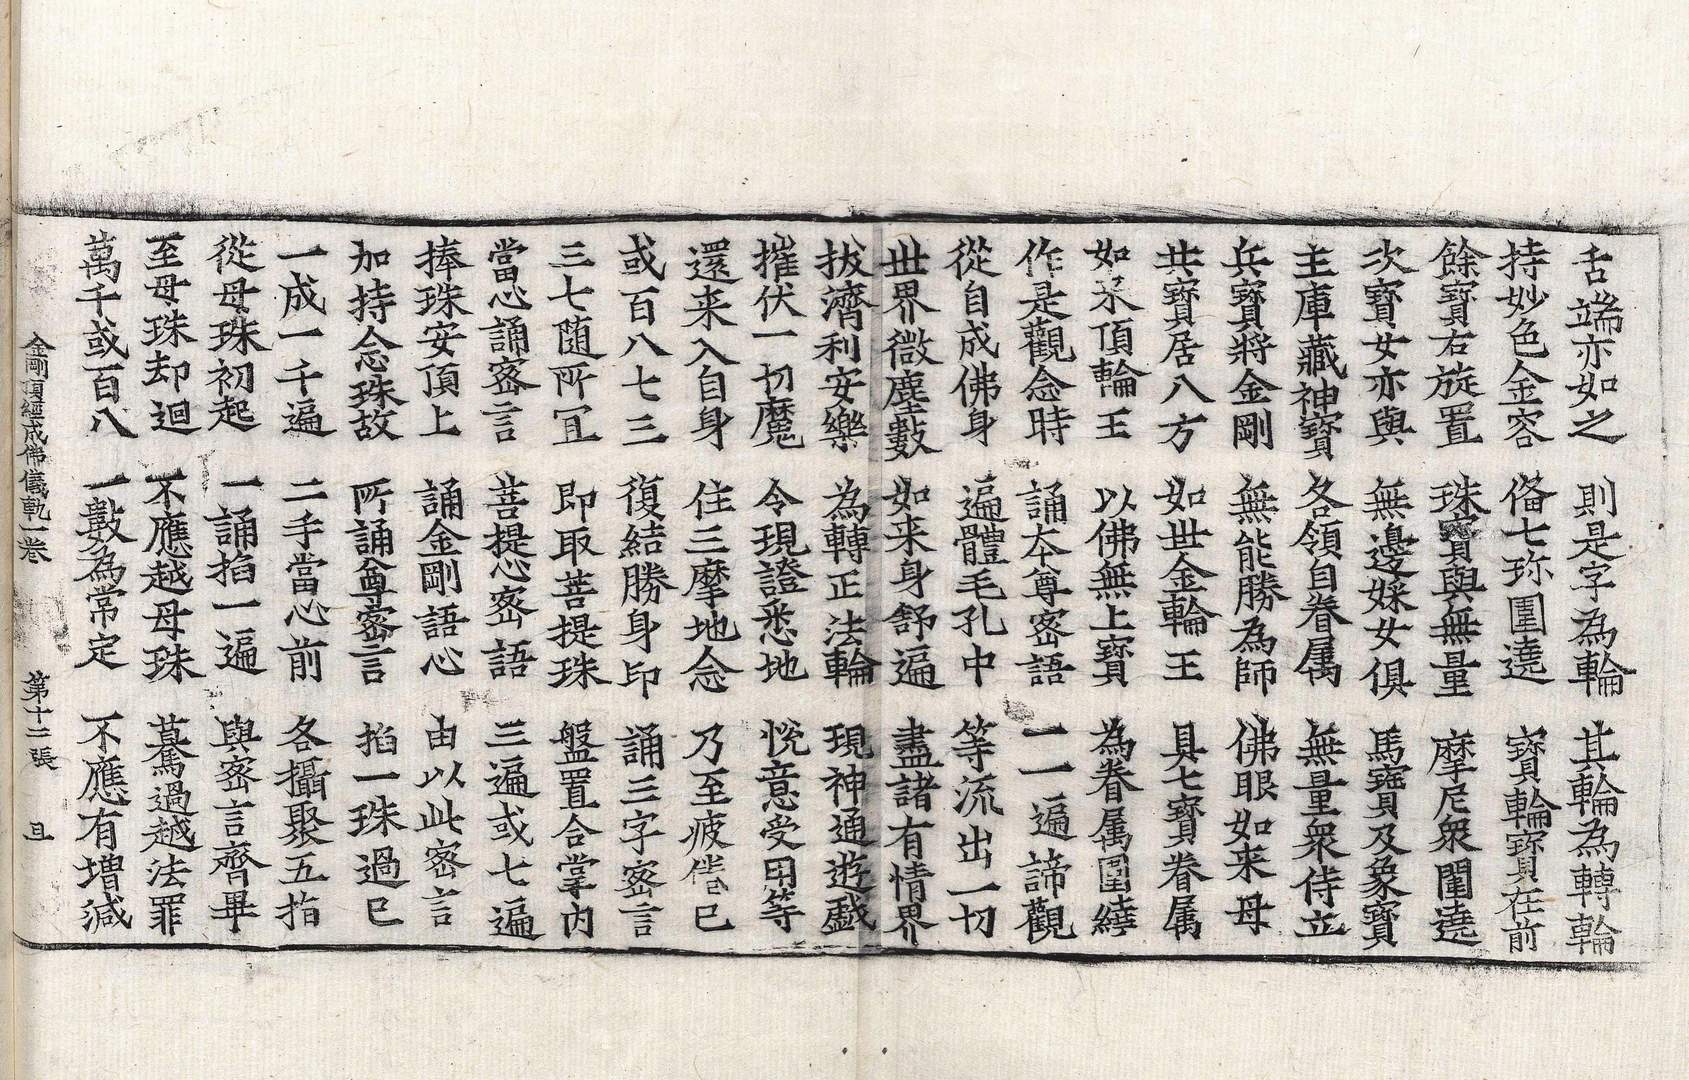 舌端亦如之 則是字為輪 其輪為轉輪
持妙色金容 俻七珎圍遶 寶輪寶在前
餘寶右旋置 珠寶與無量 摩尼衆圍遶
次寶女亦與 無邊婇女俱 馬寶及象寶
主庫藏神寶 各領自眷属 無量衆侍立
兵寶將金剛 無能勝為師 佛眼如来母
共寶居八方 如世金輪王 具七寶眷属
如来頂輪王 以佛無上寶 為眷属圍繞
作是觀念時 誦本尊密語 一一遍諦觀
從自成佛身 遍體毛孔中 等流出一切
世界微塵數 如来身舒遍 盡諸有情界
拔濟利安樂 為轉正法輪 現神通遊戲
摧伏一切魔 令現證悉地 悅意受用等
還来入自身 住三摩地念 乃至疲倦已
或百八七三 復結勝身印 誦三字密言
三七随所冝 即取菩提珠 盤置合掌内
當心誦密言 菩提心密語 三遍或七遍
捧珠安頂上 誦金剛語心 由以此密言
加持念珠故 所誦尊密言 掐一珠過已
一成一千遍 二手當心前 各攝聚五指
從母珠初起 一誦掐一遍 與密言齊畢
至母珠却迴 不應越母珠 驀過越法罪
萬千或百八 一數為常定 不應有増減
金剛頂經成佛儀軌一卷 第十二張 旦